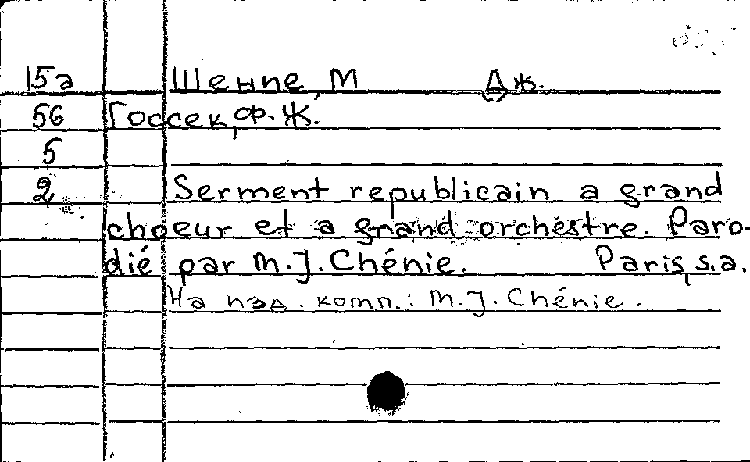 15а Шенпе, М Дж.
56 Госсек, Ф. Ж.
5
2 Serment republicain a grand
choeur et a grand orchestre. Paro-
dié par M. J. Chénie. Paris, s.a.
На изд. комп.: M. J. Chénie.